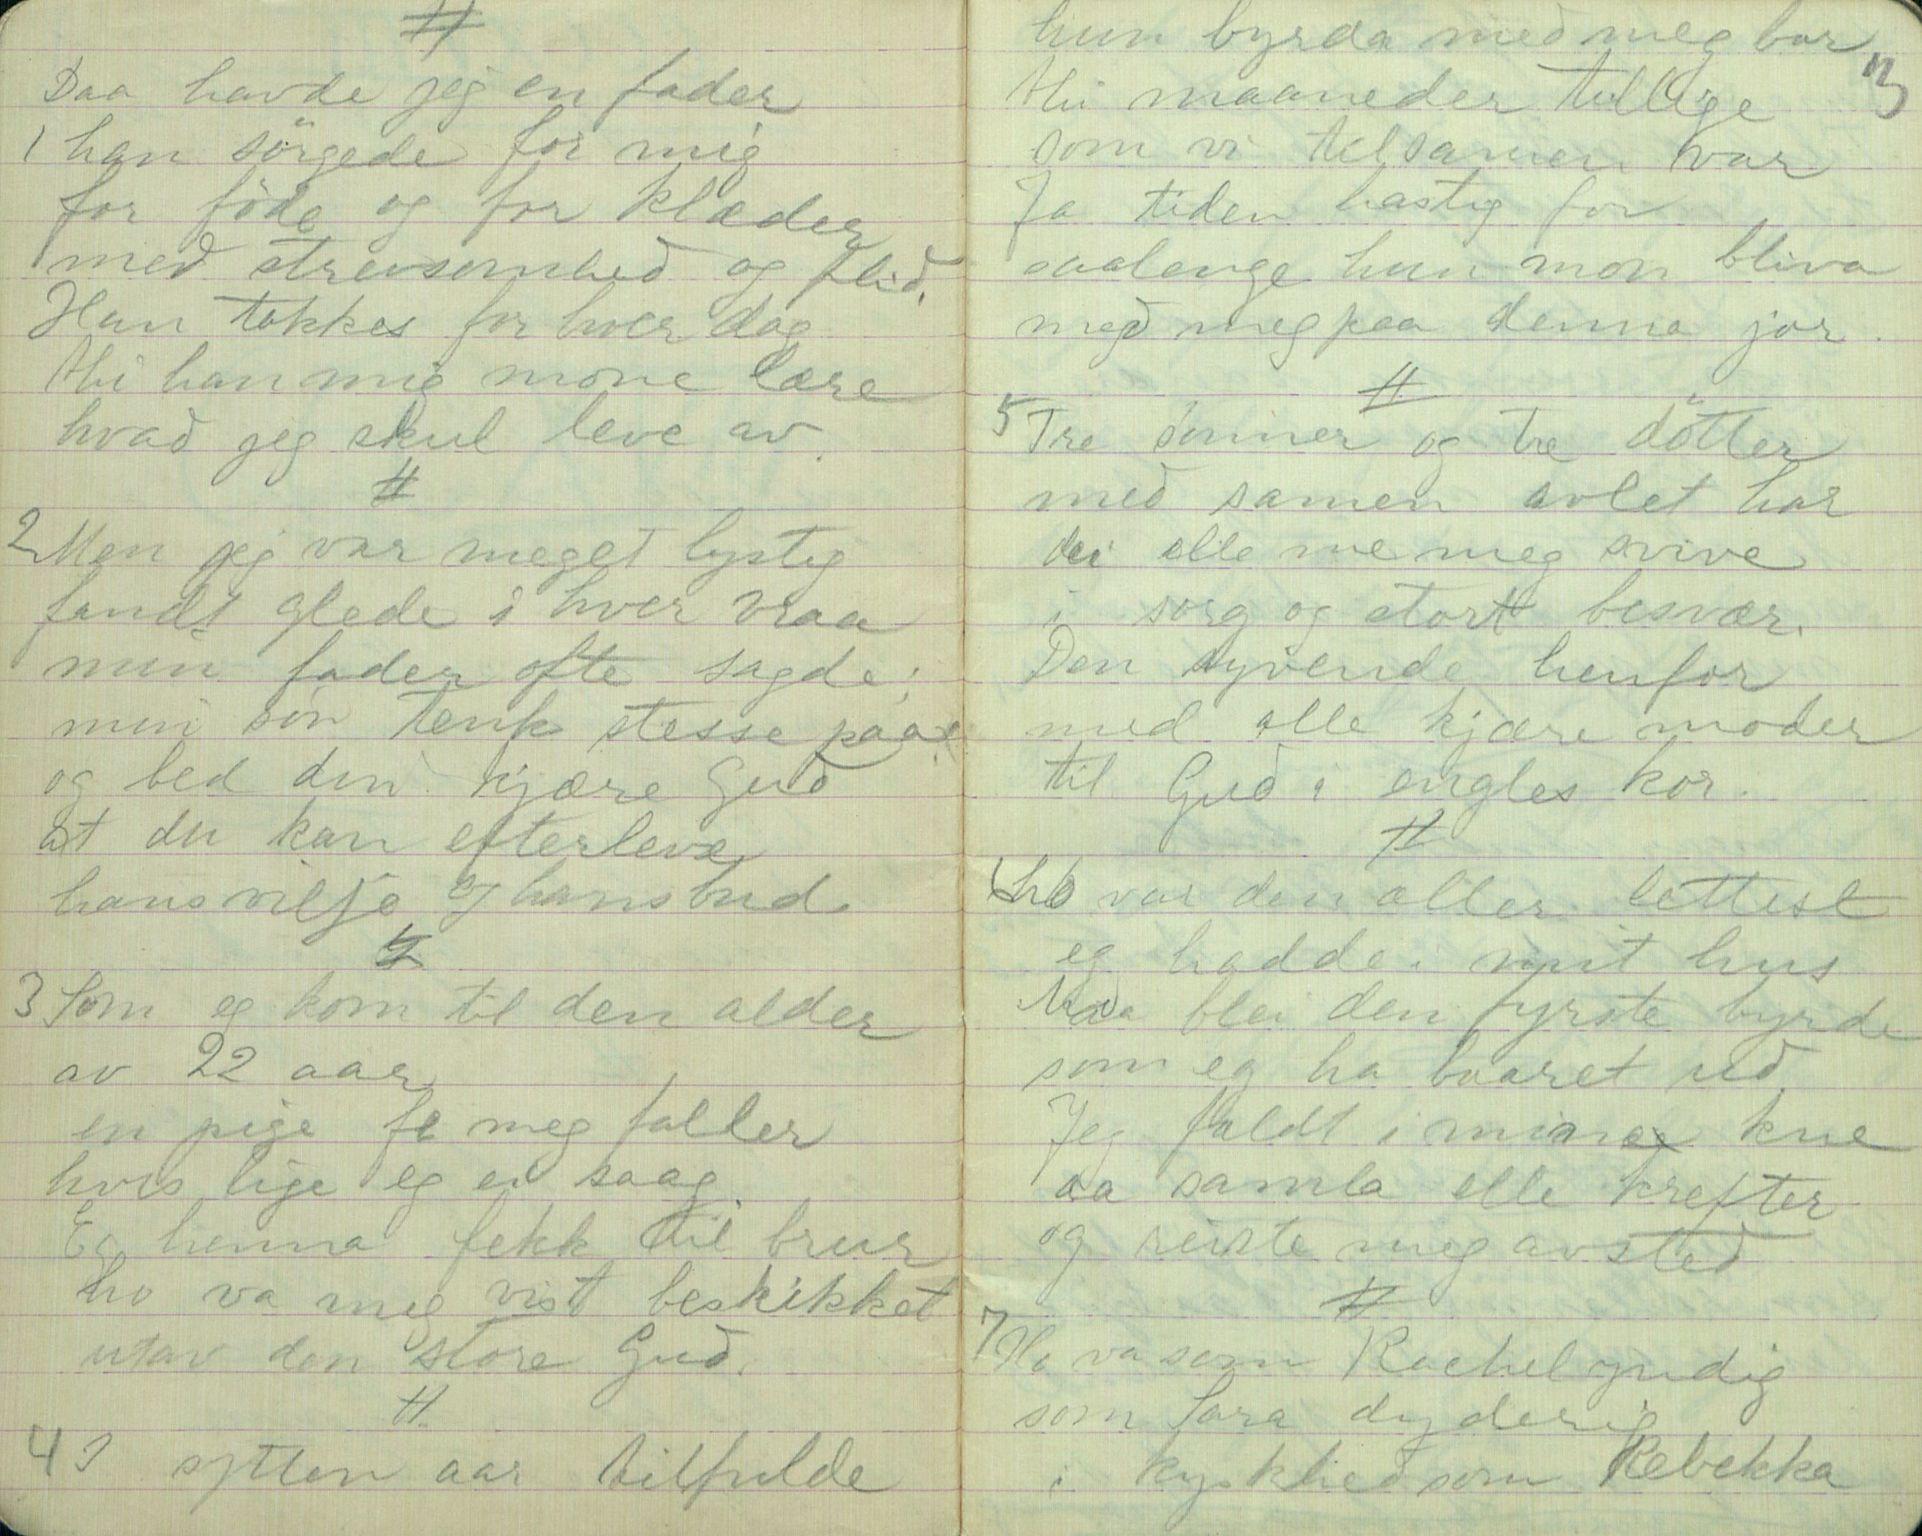 #
Daa havde jeg en fader
1 han sörgede for mig
for föde og for klæder
med strevsomhed og flid.
Han takkes for hver dag
thi han mig mone lære
hvad jeg skul leve av.
#
2 Men jeg var meget lystig
fandt glede i hver vraa
min fader ofte sagde:
min sön tenk stesse paa
og bed din kjære Gud
at du kan efterleve
hans vilje og hans bud
#
3 Som eg kom til den alder
av 22 aar
en pige fe meg faller
hvis lige eg ei saag.
Eg henna fekk til brur
ho va meg vist beskikket
utav den store Gud.
#
4 I sytten aar tilfulde
hun byrda med meg bar
thi maaneder tillige
som vi tilsamen var
Ja tiden hastig for
saalenge hun mon bliva
med meg paa denna jor.
#
5 Tre sönner og tre dötter
med samen avlet har
dei alle me meg svive
i sorg og stort besvær.
Den syvende henfor
med alle kjære moder
til Gud i engles kor.
#
6 Ho var den aller lettest
eg hadde i mit hus
blei den fyrste byrde
som eg ha baaret ud
Jeg faldt i mine kne
aa samla alle krefter
og reiste meg avsted
#
7 Ho va som Rachel yndig
som Sara dyderig
i kyskhed som Rebekka